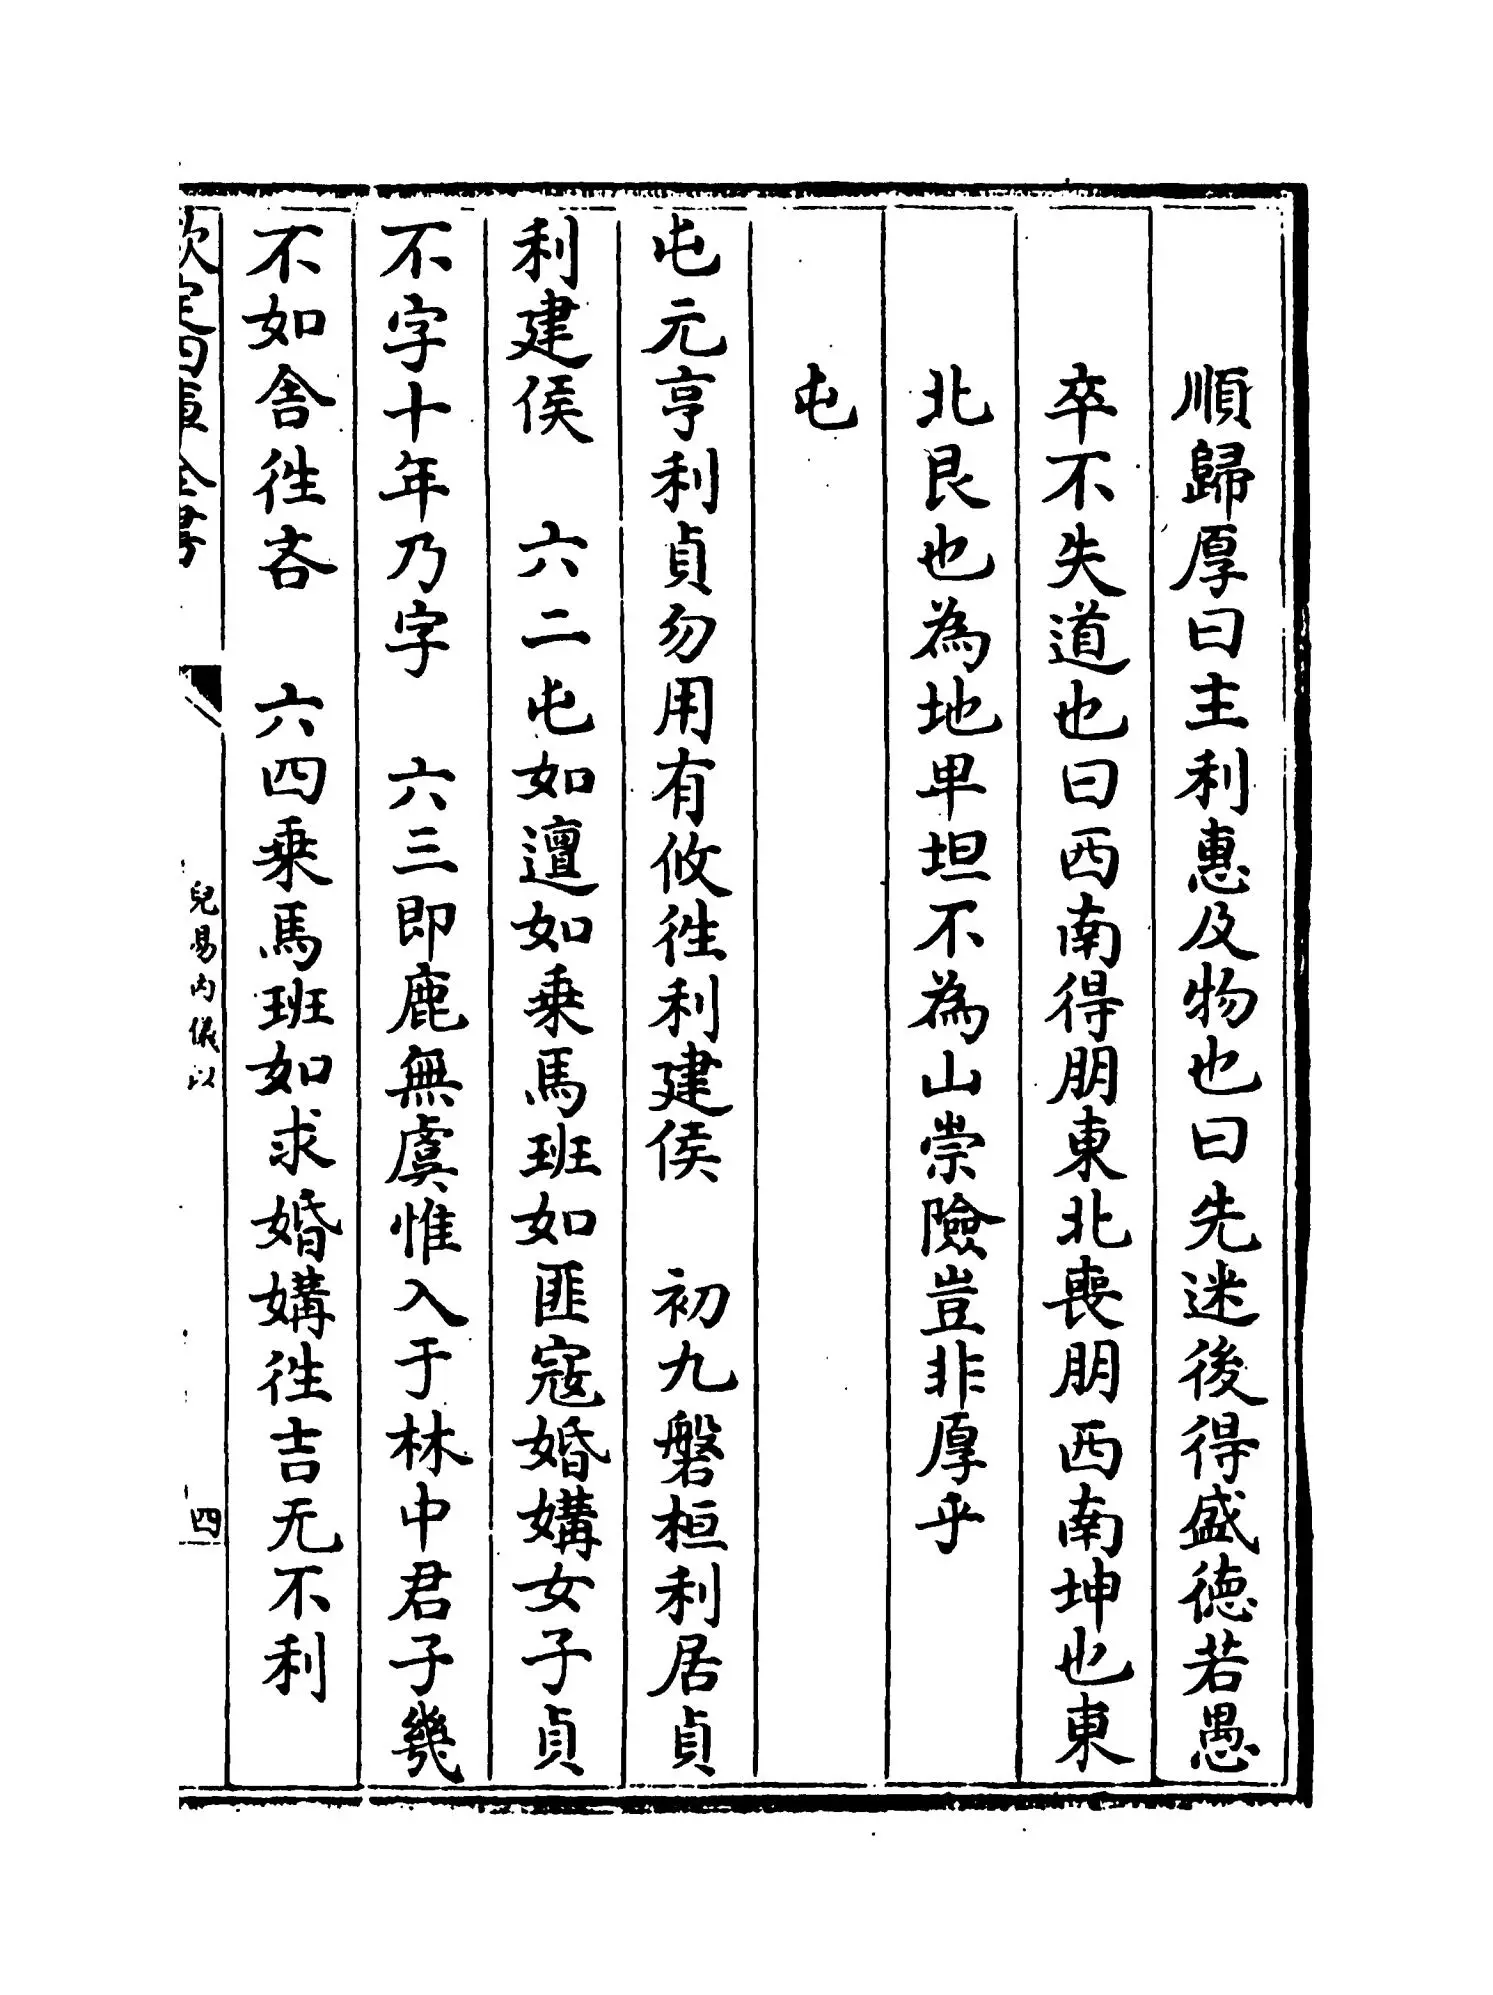 順歸厚曰主利惠及物也曰先迷後得盛徳若愚
卒不失道也曰西南得朋東北喪朋西南坤也東
北艮也為地卑坦不為山崇險豈非厚乎
屯
屯元亨利貞勿用有攸徃利建侯　初九磐桓利居貞
利建侯　六二屯如邅如乗馬班如匪寇婚媾女子貞
不字十年乃字　六三即鹿無虞惟入于林中君子幾
不如舍徃吝　六四乗馬班如求婚媾徃吉无不利
欽定四庫全書
兒易内儀以
四